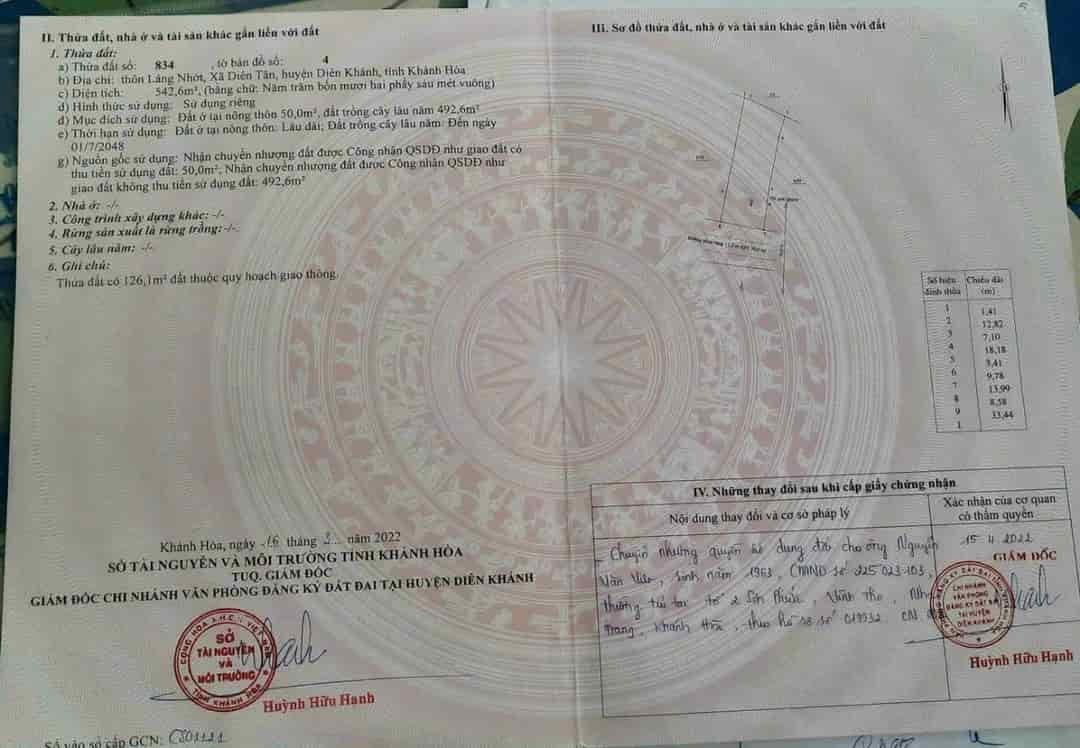 II. Thửa đất, nhà ở và tài sản khác gắn liền với đất
1. Thửa đất:
a) Thửa đất số: 834 , tờ bản đồ số: 4
b) Địa chỉ: thôn Láng Nhớt, Xã Diên Tân, huyện Diên Khánh, tỉnh Khánh Hòa
c) Diện tích: 542,6m², (bằng chữ: Năm trăm bốn mươi hai phẩy sáu mét vuông)
d) Hình thức sử dụng: Sử dụng riêng
đ) Mục đích sử dụng: Đất ở tại nông thôn 50,0m², đất trồng cây lâu năm 492,6m²
e) Thời hạn sử dụng: Đất ở tại nông thôn: Lâu dài; Đất trồng cây lâu năm: Đến ngày
01/7/2048
g) Nguồn gốc sử dụng: Nhận chuyển nhượng đất được Công nhận QSDĐ như giao đất có
thu tiền sử dụng đất: 50,0m², Nhận chuyển nhượng đất được Công nhận QSDĐ như
giao đất không thu tiền sử dụng đất: 492,6m²
2. Nhà ở: -/-
3. Công trình xây dựng khác: -/-
4. Rừng sản xuất là rừng trồng: -/-.
5. Cây lâu năm: -/-.
6. Ghi chú:
Thửa đất có 126,1m² đất thuộc quy hoạch giao thông.
Khánh Hòa, ngày 16 tháng 3 năm 2022
SỞ TÀI NGUYÊN VÀ MÔI TRƯỜNG TỈNH KHÁNH HÒA
TUQ. GIÁM ĐỐC
GIÁM ĐỐC CHI NHÁNH VĂN PHÒNG ĐĂNG KÝ ĐẤT ĐAI TẠI HUYỆN DIÊN KHÁNH
CỘNG HÒA X.H.C.N VIỆT NAM
SỞ
TÀI NGUYÊN
VÀ
MÔI TRƯỜNG
TỈNH KHÁNH HÒA
Huỳnh Hữu Hạnh
Số vào sổ cấp GCN:
III. Sơ đồ thửa đất, nhà ở và tài sản khác gắn liền với đất
Số hiệu đỉnh thửa Chiều dài (m)
1
1,41
2
12,82
3
7,10
4
18,18
5
3,41
6
9,78
7
13,99
8
8,58
9
33,44
1
IV. Những thay đổi sau khi cấp giấy chứng nhận
Nội dung thay đổi và cơ sở pháp lý
Xác nhận của cơ quan
có thẩm quyền
- Chuyển nhượng quyền sử dụng đất cho ông Nguyễn
Văn sinh năm 1963, CMND số 225 023 103,
thường trú tại tổ 2 Vĩnh Thọ, Nha
Trang, Khánh Hòa, theo hồ sơ số
15.4.2022
GIÁM ĐỐC
CHI NHÁNH
VĂN PHÒNG
ĐĂNG KÝ ĐẤT ĐAI
TẠI HUYỆN
DIÊN KHÁNH
Huỳnh Hữu Hạnh